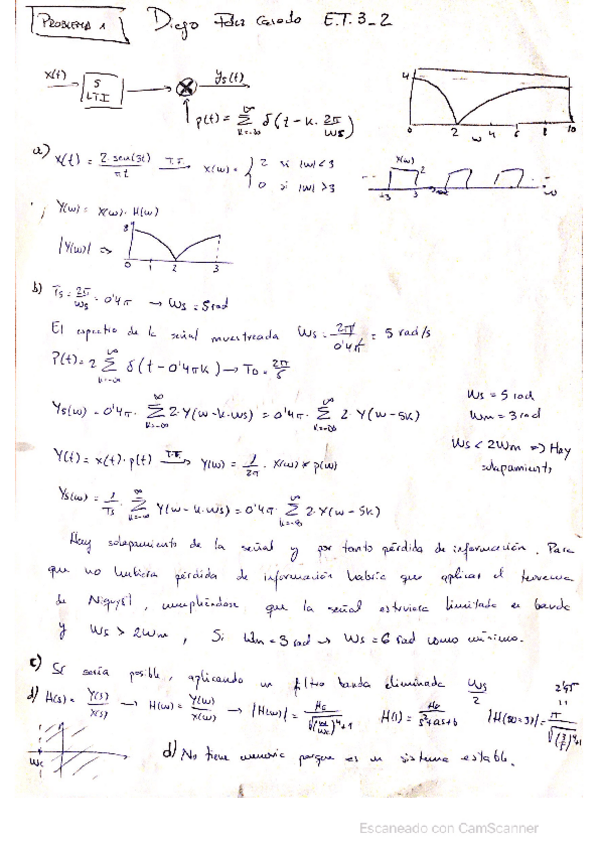 PROBLEMA 1
Diego E.T. 3_2
x(t) S LTI ys(t)
p(t) = ∑ δ(t - k·2π/ws)
k=-∞
4
0 2 4 6 8 10
w
a) x(t) = 2·sen(3t)/πt T.F. x(w) = { 2 si |w| < 3
0 si |w| > 3
x(w)
2
-3 3 w
Y(w) = X(w)·H(w)
|Y(w)| =>
8
0 1 2 3
b) Ts = 2π/ws = 0'4π → ws = 5 rad
El espectro de la señal muestreada ws = 2π/0'4π = 5 rad/s
P(t) = 2 ∑ δ(t - 0'4πk) → To = 2π/5
Ys(w) = 0'4π · ∑ 2·Y(w - k·ws) = 0'4π · ∑ 2 Y(w - 5k)
ws = 5 rad
wm = 3 rad
ws < 2wm => Hay
solapamiento
Y(t) = x(t)·p(t) T.F. Y(w) = 1/2π · X(w) * p(w)
Ys(w) = 1/Ts · ∑ Y(w - k·ws) = 0'4π · ∑ 2·X(w - 5k)
Hay solapamiento de la señal y por tanto pérdida de información. Para
que no hubiera pérdida de información habría que aplicar el teorema
de, cumpliéndose que la señal estuviera limitada en banda
y ws > 2wm, Si wm = 3 rad → ws = 6 rad como mínimo.
c) Sí sería posible, aplicando un filtro banda eliminada ws/2
d) H(s) = Y(s)/X(s) → H(w) = Y(w)/X(w) → |H(w)| =
wc
d) No tiene porque es un sistema estable.
Escaneado con CamScanner